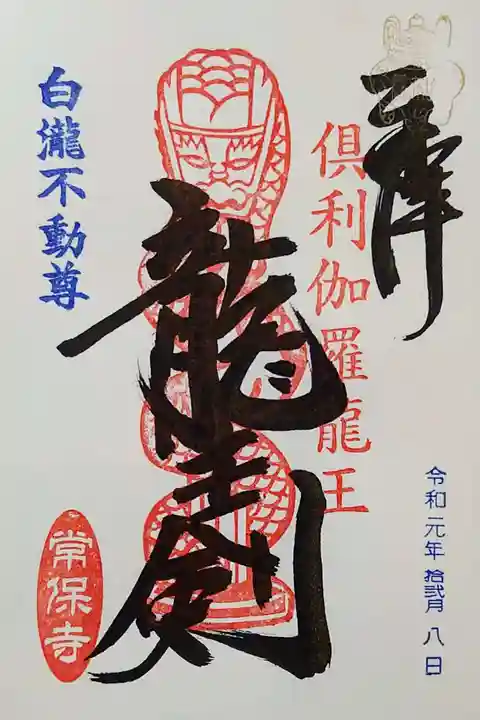 令和元年 拾弐月 八日
俱利伽羅龍王
龍王剣
白瀧不動尊
常保寺